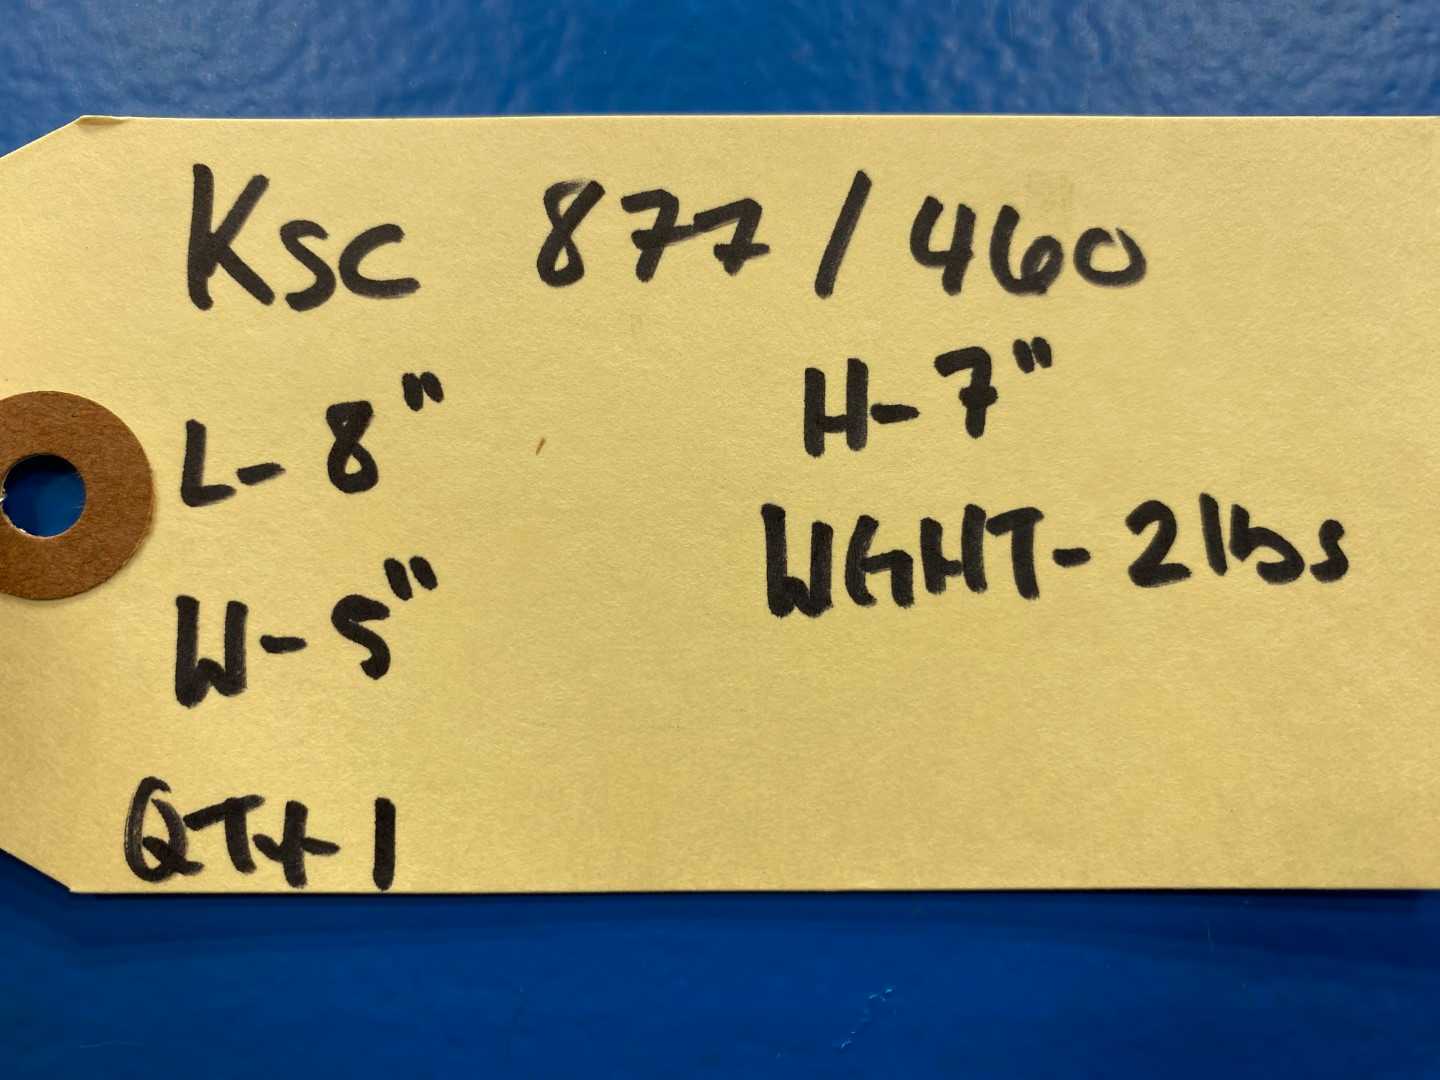 Ksc 877/460
L-8"
H-7"
W-5"
WGHT-2lbs
QTY 1